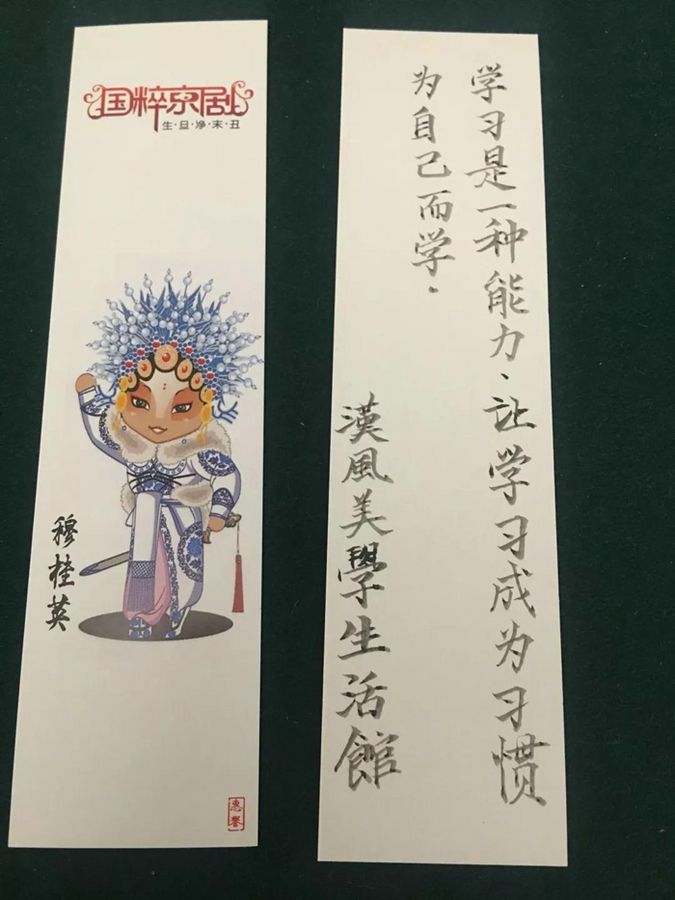 国粹京剧
生·旦·净·末·丑
穆桂英
惠誉
学习是一种能力、让学习成为习惯
为自己而学.
漢風美學生活館